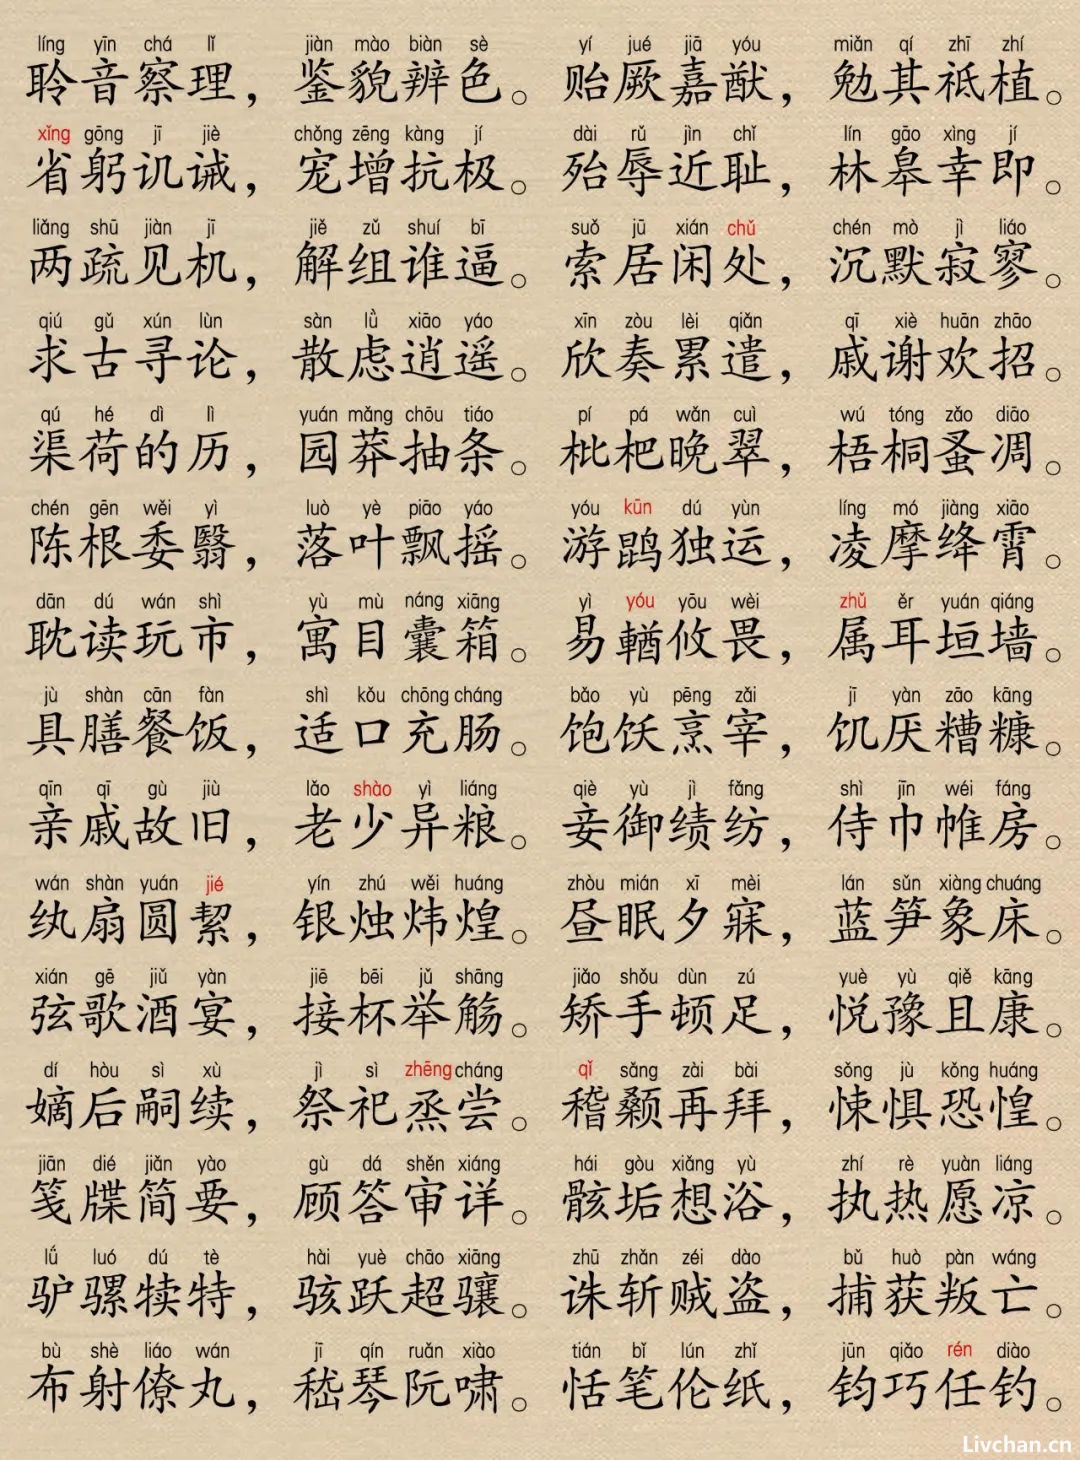 líng yīn chá lǐ jiàn mào biàn sè yí jué jiā yóu miǎn qí zhī zhí
聆音察理，鉴貌辨色。贻厥嘉猷，勉其祗植。
xǐng gōng jī jiè chǒng zēng kàng jí dài rǔ jìn chǐ lín gāo xìng jí
省躬讥诫，宠增抗极。殆辱近耻，林皋幸即。
liǎng shū jiàn jī jiě zǔ shuí bī suǒ jū xián chǔ chén mò jì liáo
两疏见机，解组谁逼。索居闲处，沉默寂寥。
qiú gǔ xún lùn sàn lǜ xiāo yáo xīn zòu lèi qiǎn qī xiè huān zhāo
求古寻论，散虑逍遥。欣奏累遣，戚谢欢招。
qú hé dì lì yuán mǎng chōu tiáo pí pá wǎn cuì wú tóng zǎo diāo
渠荷的历，园莽抽条。枇杷晚翠，梧桐蚤凋。
chén gēn wěi yì luò yè piāo yáo yóu kūn dú yùn líng mó jiàng xiāo
陈根委翳，落叶飘摇。游鹍独运，凌摩绛霄。
dān dú wán shì yù mù náng xiāng yì yóu yōu wèi zhǔ ěr yuán qiáng
耽读玩市，寓目囊箱。易輶攸畏，属耳垣墙。
jù shàn cān fàn shì kǒu chōng cháng bǎo yù pēng zǎi jī yàn zāo kāng
具膳餐饭，适口充肠。饱饫烹宰，饥厌糟糠。
qīn qī gù jiù lǎo shào yì liáng qiè yù jì fǎng shì jīn wéi fáng
亲戚故旧，老少异粮。妾御绩纺，侍巾帷房。
wán shàn yuán jié yín zhú wěi huáng zhòu mián xī mèi lán sǔn xiàng chuáng
纨扇圆絜，银烛炜煌。昼眠夕寐，蓝笋象床。
xián gē jiǔ yàn jiē bēi jǔ shāng jiǎo shǒu dùn zú yuè yù qiě kāng
弦歌酒宴，接杯举觞。矫手顿足，悦豫且康。
dí hòu sì xù jì sì zhēng cháng qǐ sǎng zài bài sǒng jù kǒng huáng
嫡后嗣续，祭祀烝尝。稽颡再拜，悚惧恐惶。
jiān dié jiǎn yào gù dá shěn xiáng hái gòu xiǎng yù zhí rè yuàn liáng
笺牒简要，顾答审详。骸垢想浴，执热愿凉。
lǘ luó dú tè hài yuè chāo xiāng zhū zhǎn zéi dào bǔ huò pàn wáng
驴骡犊特，骇跃超骧。诛斩贼盗，捕获叛亡。
bù shè liáo wán jī qín ruǎn xiào tián bǐ lún zhǐ jūn qiǎo rén diào
布射僚丸，嵇琴阮啸。恬笔伦纸，钧巧任钓。
Livchan.cn